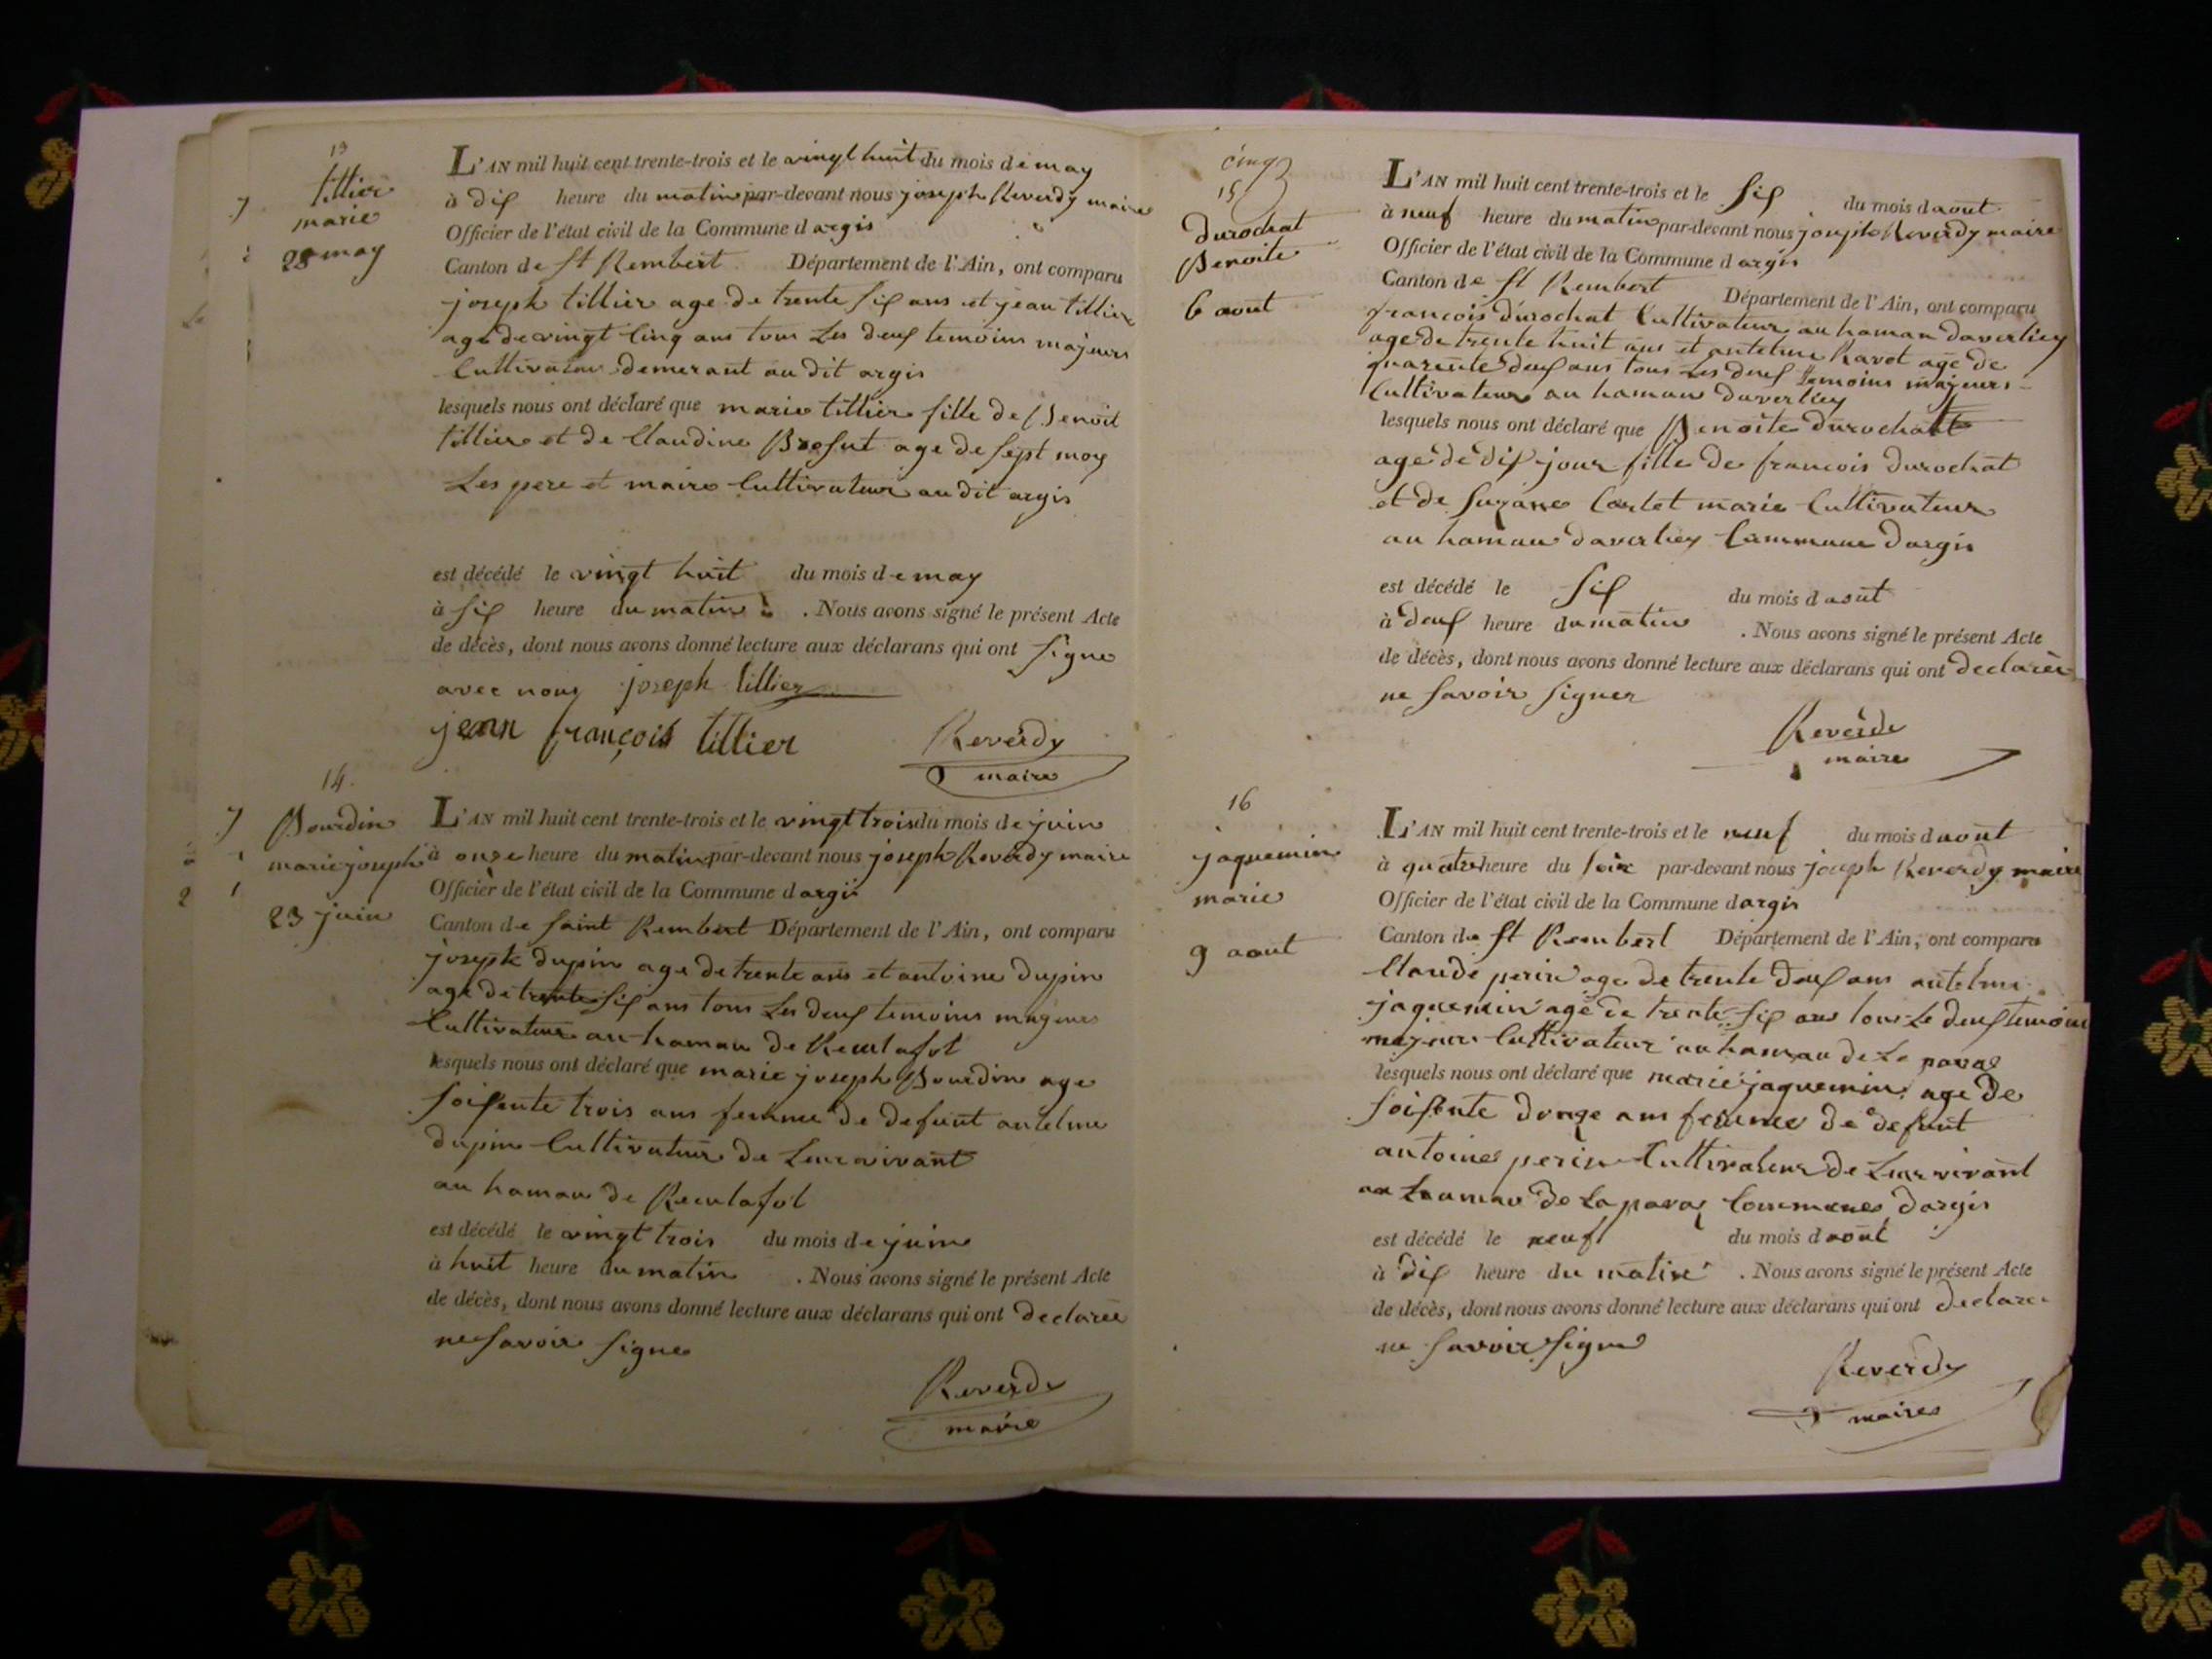 13
tillier
marie
28 may
L'AN mil huit cent trente-trois et le vingt huit du mois de may
à dix heure du matin par-devant nous joseph Reverdy maire
Officier de l'état civil de la Commune d argis
Canton de St Rembert Département de l'Ain, ont comparu
joseph tillier age de trente six ans et jean tillier
age de vingt Cinq ans tous Les deux temoins majeurs
Cultivateur demerant au dit argis
lesquels nous ont déclaré que marie tillier fille de Benoit
tillier et de Claudine age de sept moy
Les pere et maire Cultivateur au dit argis
est décédé le vingt huit du mois de may
à six heure du matin . Nous avons signé le présent Acte
de décès, dont nous avons donné lecture aux déclarans qui ont signe
avec nous joseph tillier
jean françois tillier Reverdy
maire
14.
Bourdin
marie joseph
23 juin
L'AN mil huit cent trente-trois et le vingt trois du mois de juin
à onze heure du matin par-devant nous joseph Reverdy maire
Officier de l'état civil de la Commune d argis
Canton de saint Rembert Département de l'Ain, ont comparu
joseph dupin age de trente ans et antoine dupin
age de trente six ans tous Les deux temoins majeurs
Cultivateur au hamau de Reculafol
lesquels nous ont déclaré que marie joseph Bourdin age
soixente trois ans femme de defunt antelme
dupin Cultivateur de Leur vivant
au hamau de Reculafol
est décédé le vingt trois du mois de juin
à huit heure du matin . Nous avons signé le présent Acte
de décès, dont nous avons donné lecture aux déclarans qui ont declarée
ne savoir signe
Reverdy
maire
cinq
15
durochat
Benoite
6 aout
L'AN mil huit cent trente-trois et le six du mois d aout
à neuf heure du matin par-devant nous joseph Reverdy maire
Officier de l'état civil de la Commune d argis
Canton de St Rembert Département de l'Ain, ont comparu
francois durochat Cultivateur au hamau daverliey
age de trente huit ans et antelme Ravot age de
quarente deux ans tous Les deux temoins majeurs
Cultivateur au hamau daverliey
lesquels nous ont déclaré que Benoite durochat
age de dix jour fille de francois durochat
et de suzane Cartet marie Cultivateur
au hamau daverliey Commune dargis
est décédé le six du mois d aout
à deux heure du matin . Nous avons signé le présent Acte
de décès, dont nous avons donné lecture aux déclarans qui ont declarer
ne savoir signer
Reverdy
maire
16
jaquemin
marie
9 aout
L'AN mil huit cent trente-trois et le neuf du mois d aout
à quatre heure du soir par-devant nous joseph Reverdy maire
Officier de l'état civil de la Commune d argis
Canton de St Rembert Département de l'Ain, ont comparu
Claude perin age de trente deux ans antelme
jaquemin age de trente six ans tous Le deux temoin
majeur Cultivateur au hamau de La
lesquels nous ont déclaré que marie jaquemin age de
soixente douze ans femme de defunt
antoine perin Cultivateur de Leur vivant
au hamau de La Commune dargis
est décédé le neuf du mois d aout
à dix heure du matin . Nous avons signé le présent Acte
de décès, dont nous avons donné lecture aux déclarans qui ont declare
ne savoir signe
Reverdy
maire